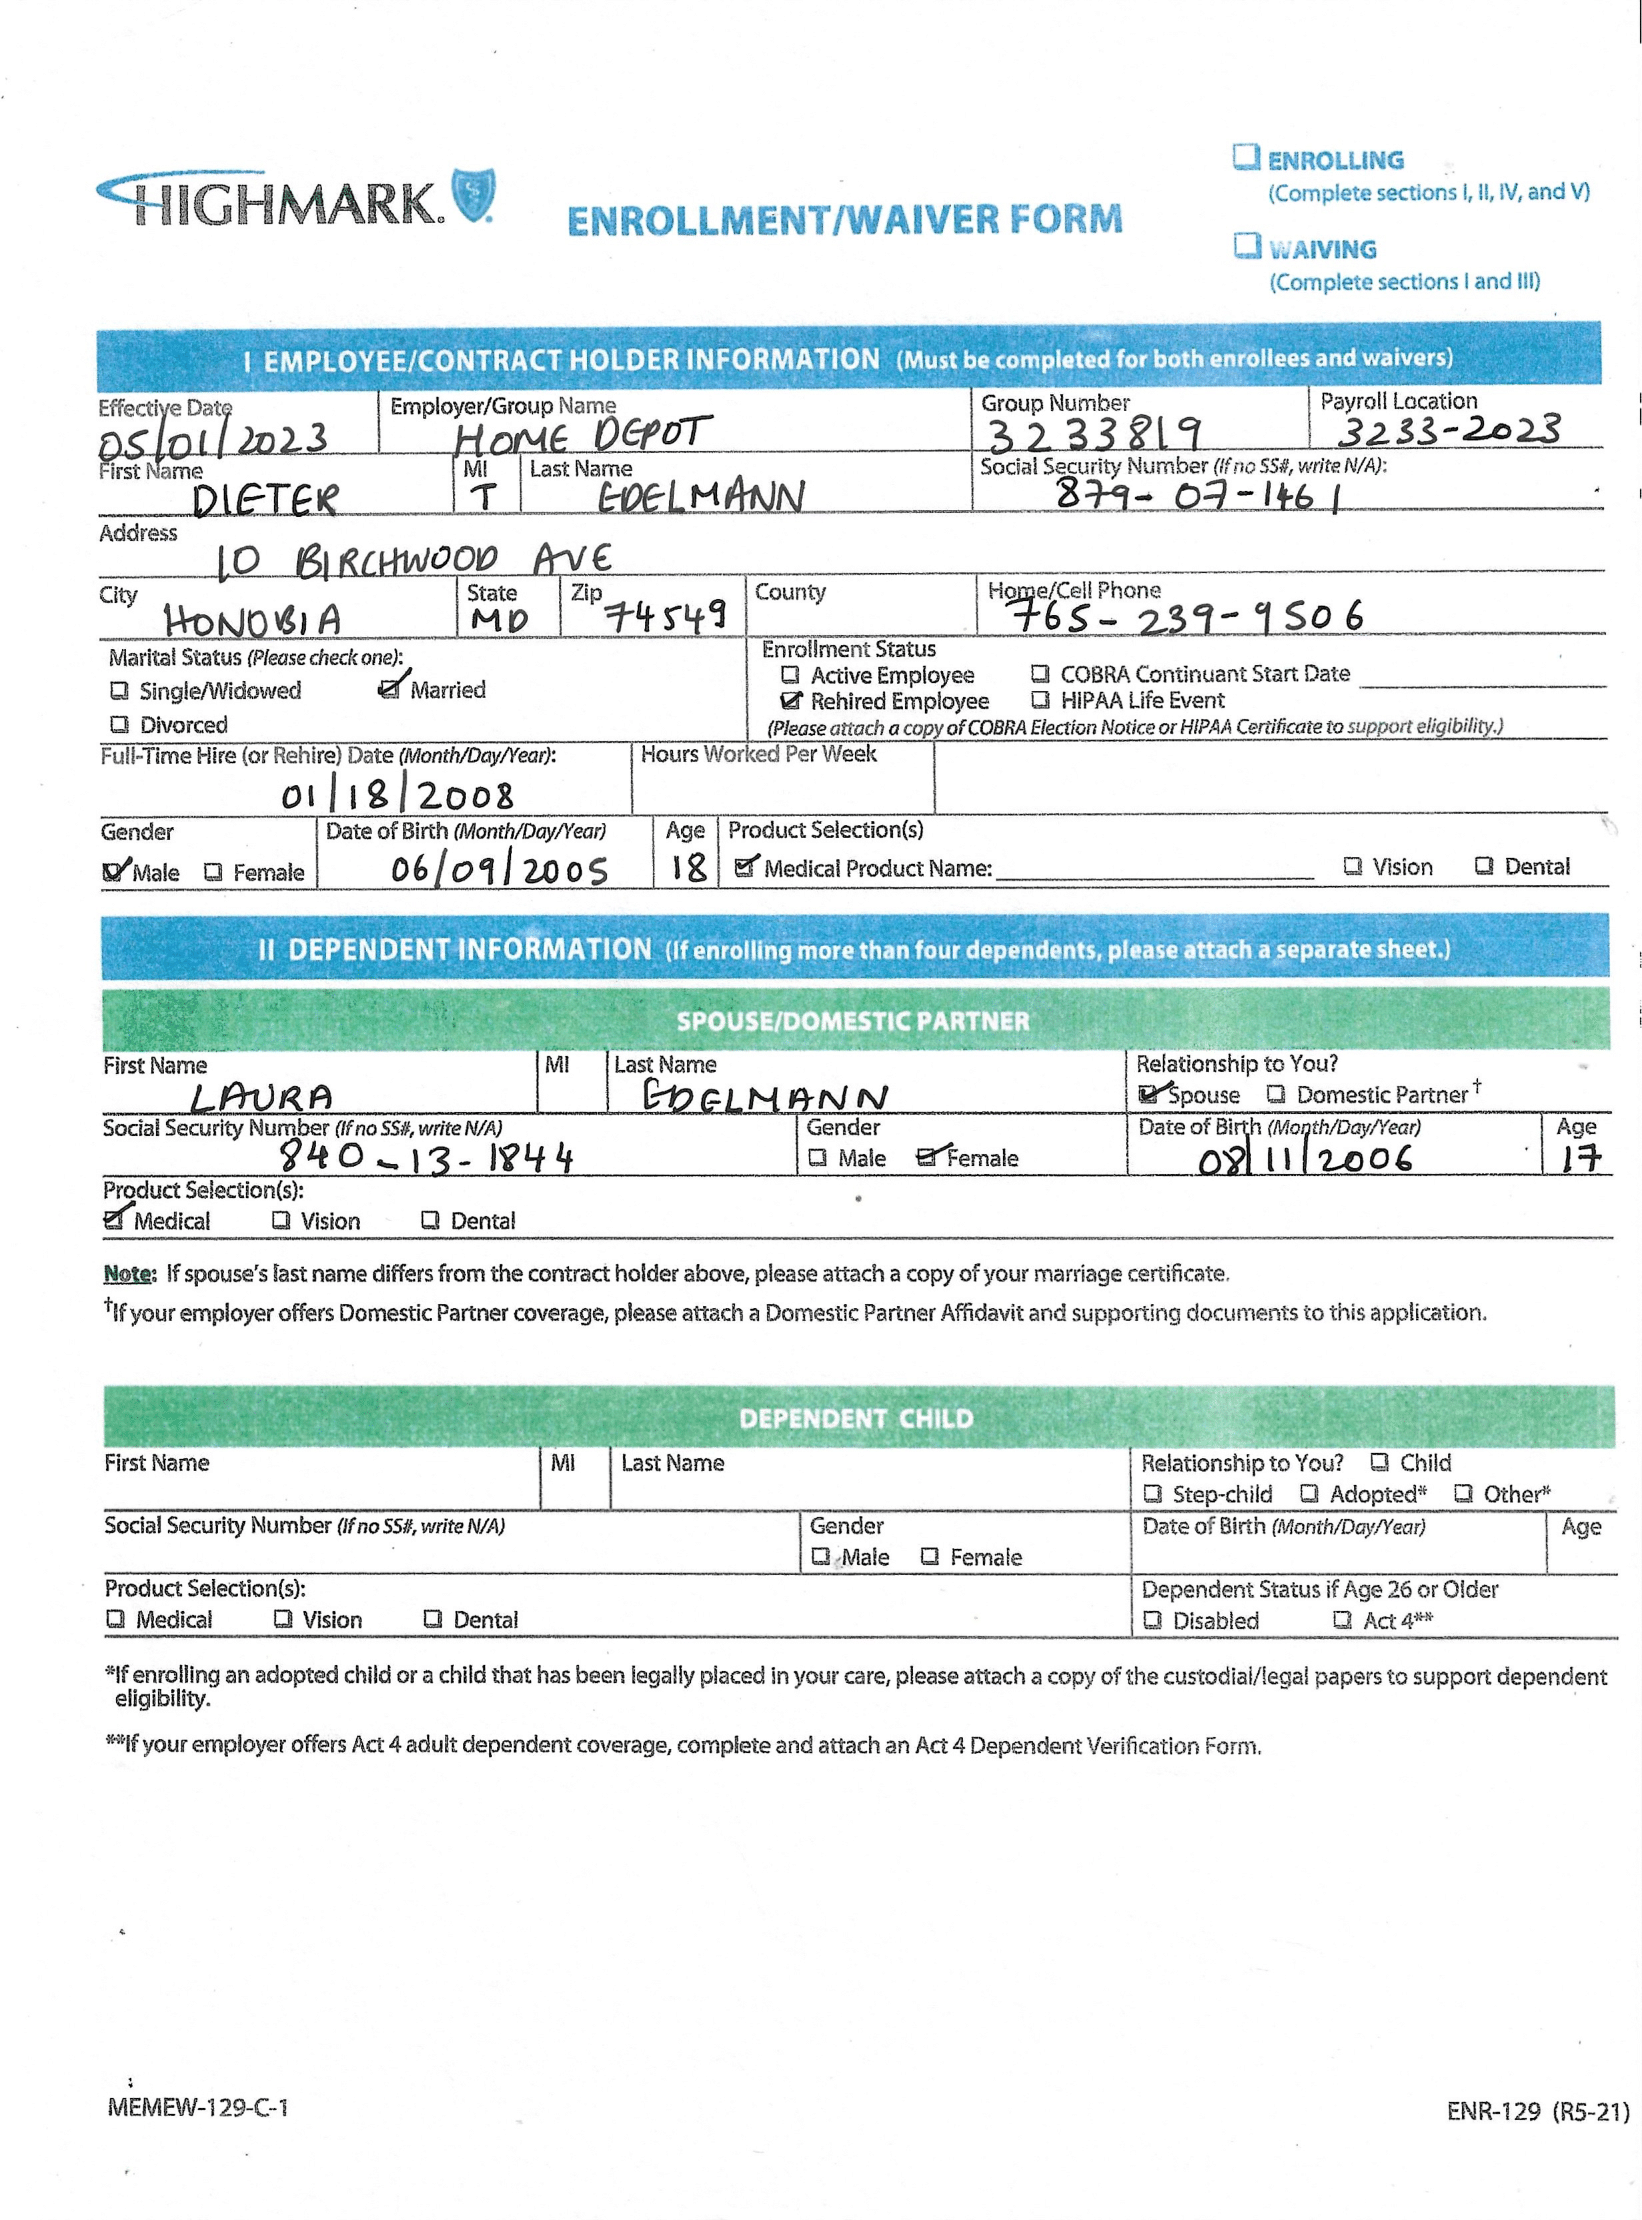 HIGHMARK.
ENROLLMENT/WAIVER FORM
ENROLLING
(Complete sections I, II, IV, and V)
WAIVING
(Complete sections I and III)
I EMPLOYEE/CONTRACT HOLDER INFORMATION (Must be completed for both enrollees and waivers)
Effective Date Employer/Group Name Group Number Payroll Location
05/01/2023 HOME DEPOT 3233819 3233-2023
First Name MI Last Name Social Security Number (If no SS#, write N/A):
DIETER T EDELMANN 879-07-1461
Address
10 BIRCHWOOD AVE
City State Zip County Home/Cell Phone
HONOBIA MD 74549 765-239-9506
Marital Status (Please check one): Enrollment Status
Active Employee COBRA Continuant Start Date
Single/Widowed Married Rehired Employee HIPAA Life Event
Divorced (Please attach a copy of COBRA Election Notice or HIPAA Certificate to support eligibility.)
Full-Time Hire (or Rehire) Date (Month/Day/Year): Hours Worked Per Week
01/18/2008
Gender Date of Birth (Month/Day/Year) Age Product Selection(s)
Male Female 06/09/2005 18 Medical Product Name: Vision Dental
II DEPENDENT INFORMATION (If enrolling more than four dependents, please attach a separate sheet.)
SPOUSE/DOMESTIC PARTNER
First Name MI Last Name Relationship to You?
LAURA EDELMANN Spouse Domestic Partner†
Social Security Number (If no SS#, write N/A) Gender Date of Birth (Month/Day/Year) Age
840-13-1844 Male Female 08/11/2006 17
Product Selection(s):
Medical Vision Dental
Note: If spouse's last name differs from the contract holder above, please attach a copy of your marriage certificate.
†If your employer offers Domestic Partner coverage, please attach a Domestic Partner Affidavit and supporting documents to this application.
DEPENDENT CHILD
First Name MI Last Name Relationship to You? Child
Step-child Adopted* Other*
Social Security Number (If no SS#, write N/A) Gender Date of Birth (Month/Day/Year) Age
Male Female
Product Selection(s): Dependent Status if Age 26 or Older
Medical Vision Dental Disabled Act 4**
*If enrolling an adopted child or a child that has been legally placed in your care, please attach a copy of the custodial/legal papers to support dependent
eligibility.
**If your employer offers Act 4 adult dependent coverage, complete and attach an Act 4 Dependent Verification Form.
MEMEW-129-C-1 ENR-129 (R5-21)